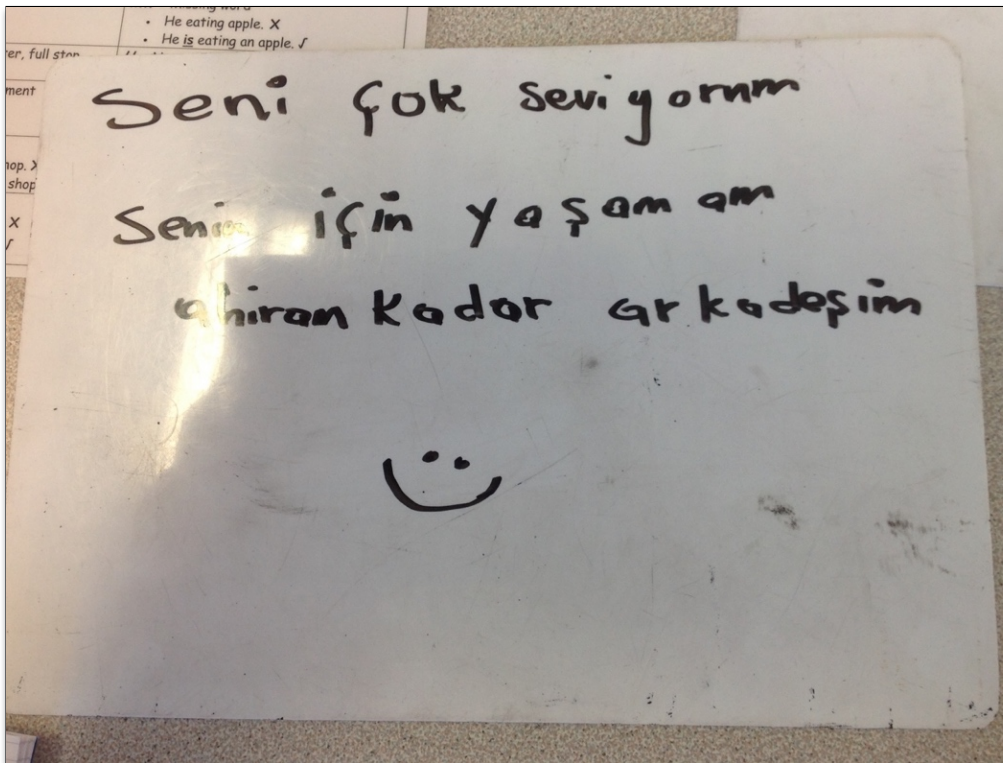 He eating apple. X
He is eating an apple. √
er, full stop
ment
hop. X
shop
X
√
Seni çok seviyorum
Senin için yaşamam
ahiran kadar arkadeşim